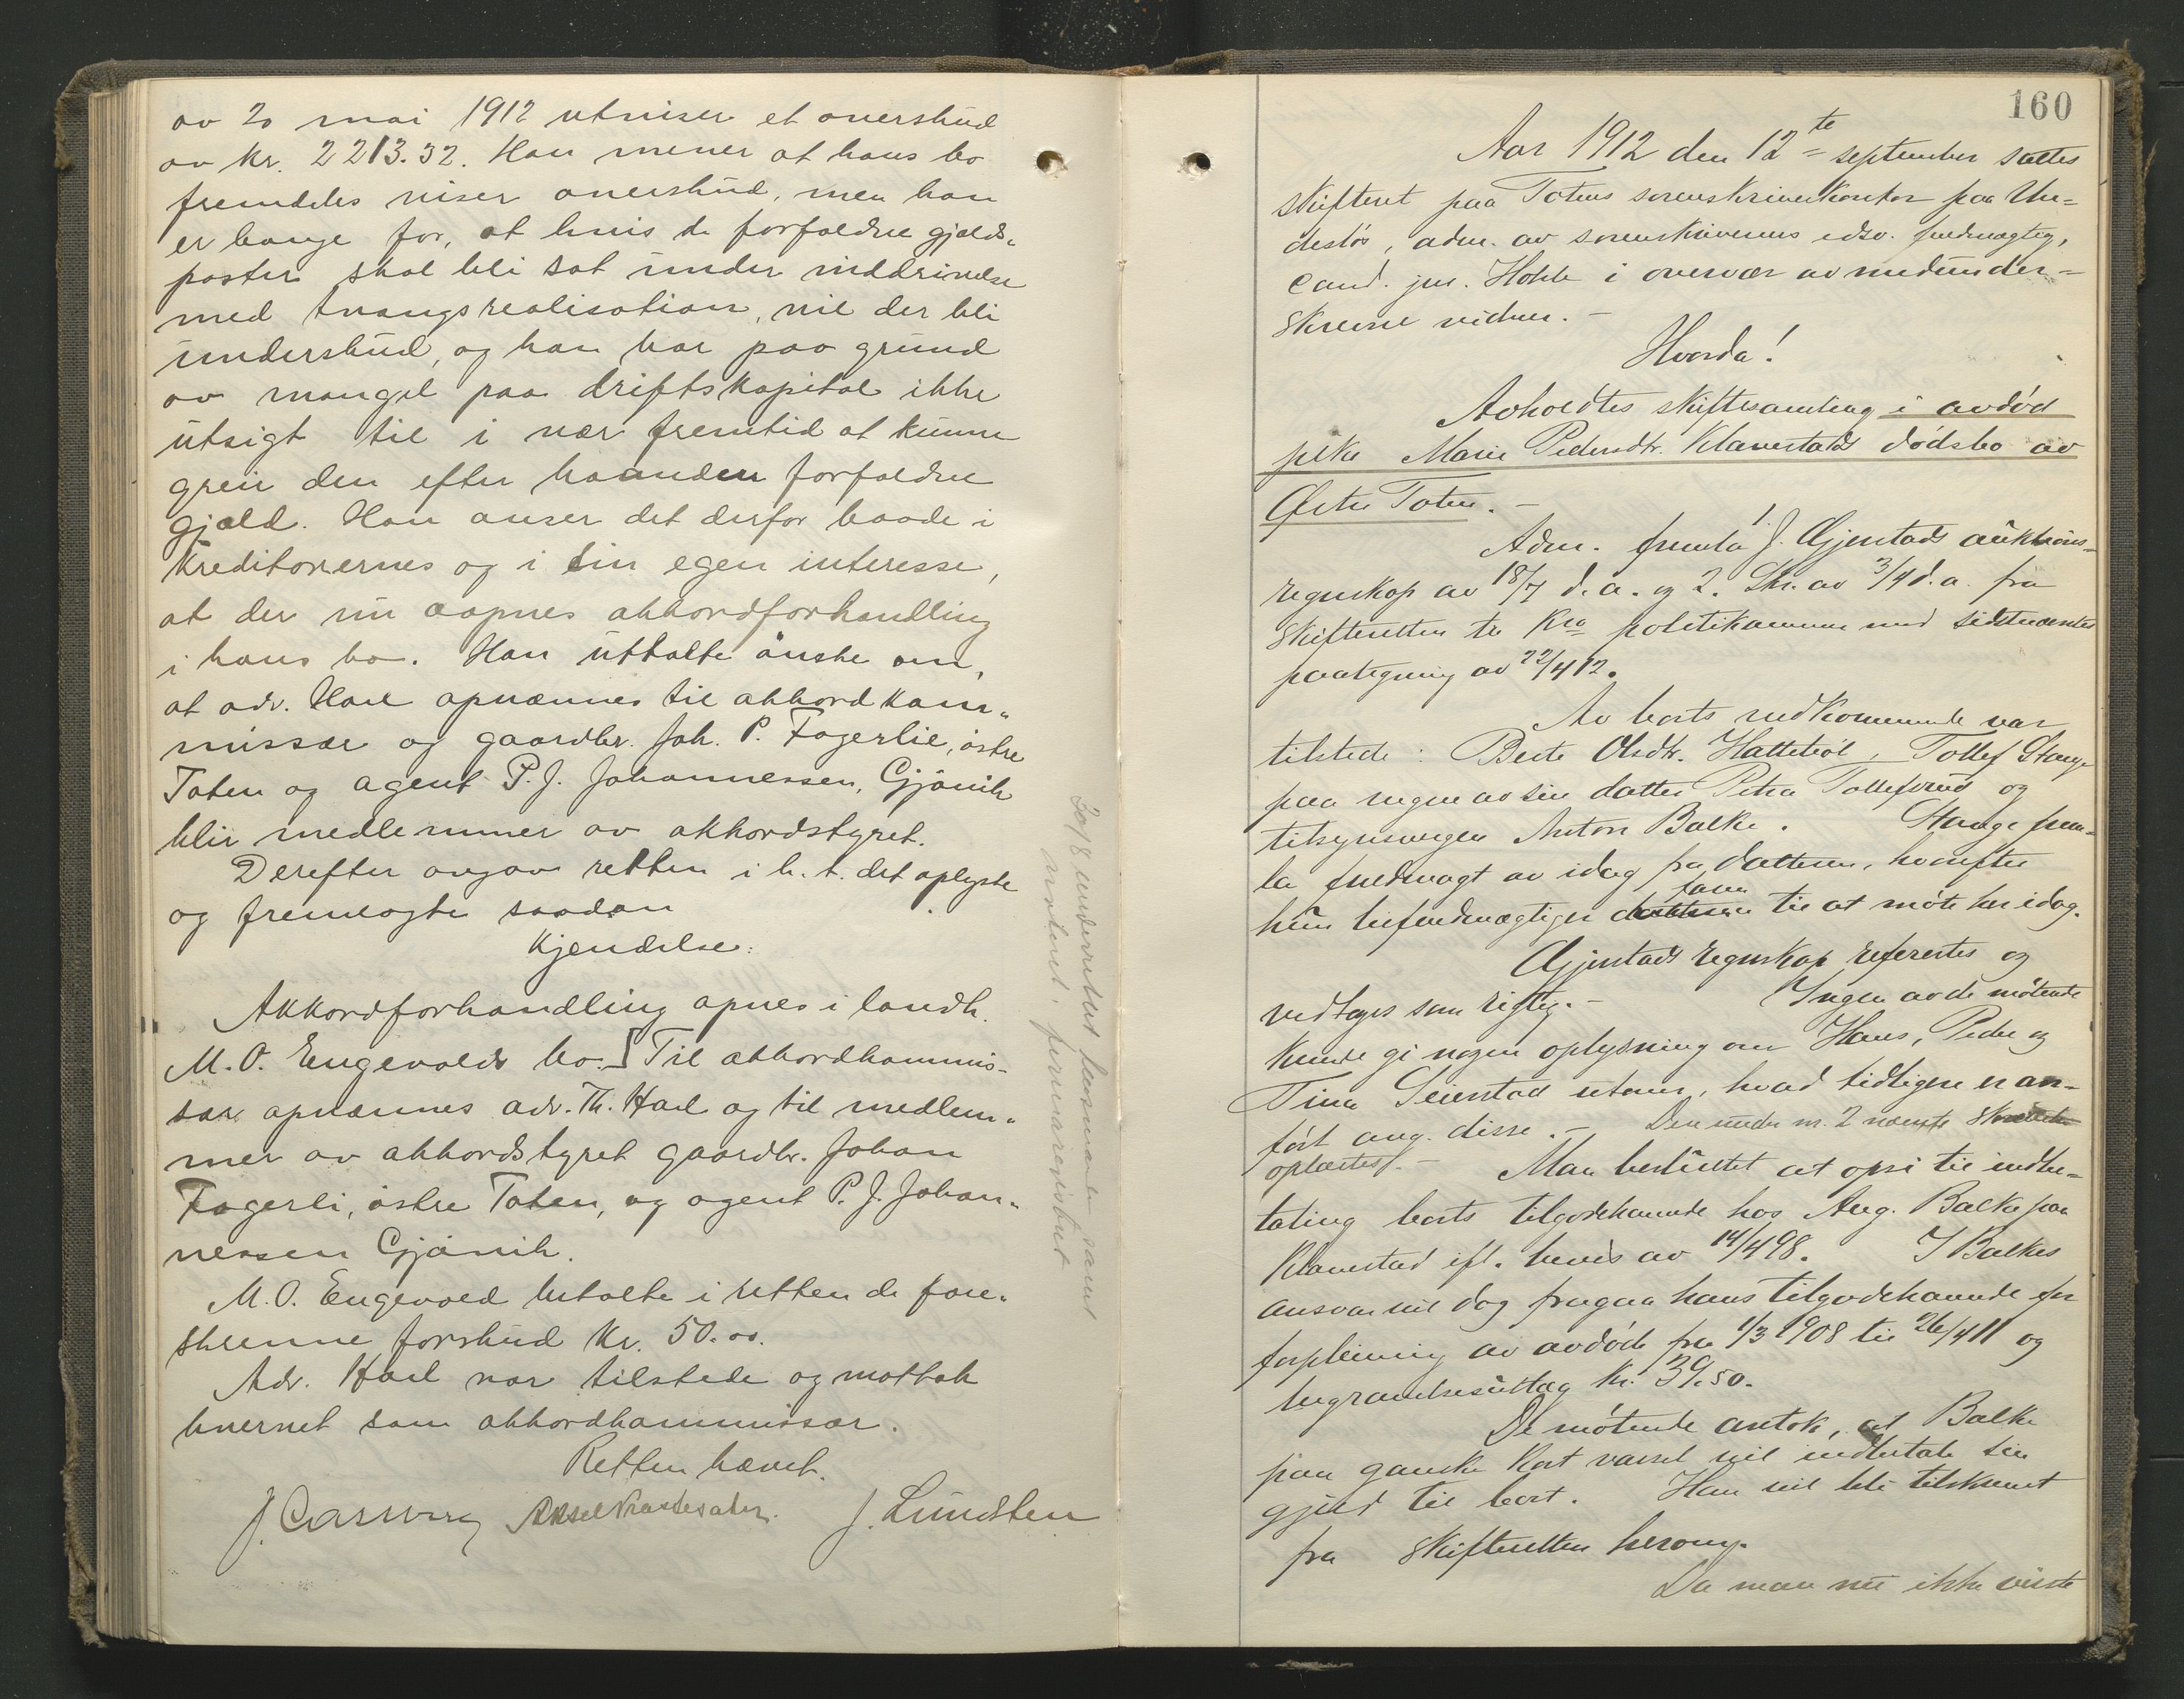 av 20 mai 1912 utviser et overskud
av kr. 2213.32. Han mener at hans bo
fremdeles viser overskud, men han
er bange for, at hvis de forfaldne gjælds-
poster skal bli sat under inddrivelse
med tvangsrealisation, vil der bli
underskud, og han har paa grund
av mangel paa driftskapital ikke
utsigt til i nær fremtid at kunne
greie den efter haanden forfaldne
gjæld. Han anser det derfor baade i
kreditorernes og i sin egen interesse,
at der nu aapnes akkordforhandling
i hans bo. Han uttalte ønske om,
at adv. Hael opnævnes til akkordkom-
missær og gaardbr. Joh. P. Fagerlie, østre
Toten og agent P. J. Johannessen, Gjøvik
blir medlemmer av akkordstyret.
Derefter avgav retten i h. t. det oplyste
og fremlagte saadan
Kjendelse:
Akkordforhandling apnes i landh.
M. O. Engevolds bo. Til akkordkommis-
sær opnævnes adv. Th. Hael og til medlem-
mer av akkordstyret gaardbr. Johan
Fagerli, østre Toten, og agent P. J. Johan-
nessen Gjøvik.
M. O. Engevold betalte i retten de fore-
skrevne forskud kr. 50.00.
Adv. Hael var tilstede og mottok
hvervet som akkordkommissær.
Retten hævet.
J. Lundsten
20/8 underrettet kommissæren samt
notert i firmaregistret
160
Aar 1912 den 12te september sattes
skifteret paa Totens sorenskriverkontor paa Un-
destøs, adm. av sorenskriverens edsv. fuldmægtig,
cand. jur. Holth i overvær av medunder-
skrevne vidner. -
Hvorda!
Avholdtes skiftesamling i avdød
pike Marie Pedersdtr. Klavestads dødsbo av
Østre Toten. -
Adm. fremla 1. J. Gjestads auktions-
regnskap av 18/7 d. a. og 2. Skr. av 3/4 d. a. fra
skifteretten til Kra politikammer med sidstnævntes
paategning av 22/4 12.
Av boets vedkommende var
tilstede: Berte Olsdtr. Hattebøl, Tollef Stange
paa vegne av sin datter Petra Tollefsrud og
tilsynsvergen Anton Balke. Stange frem-
la fuldmagt av idag fra datteren, hvorefter
hun befuldmægtiger faren til at møte her idag.
Gjestads regnskap refereres og
vedtages som rigtig. - Ingen av de møtende
kunde gi nogen oplysning om Hans, Peder og
Tina Seierstad utover, hvad tidligere er an-
ført ang. disse. - Den under nr. 2 nævnte skrivelse
oplæstes. - Man besluttet at opsi til indbe-
taling boets tilgodehavende hos Aug. Balke paa
Klavestad ifl. bevis av 14/4 98. I Balkes
ansvar vil dog fragaa hans tilgodehavende for
forpleining av avdøde fra 1/3 1908 til 26/4 11 og
begravelsesutlæg kr. 39.50.
De møtende antok, at Balke
paa ganske kort varsel vil indbetale sin
gjæld til boet. Han vil bli tilskrevet
fra skifteretten herom.
Da man nu ikke viste